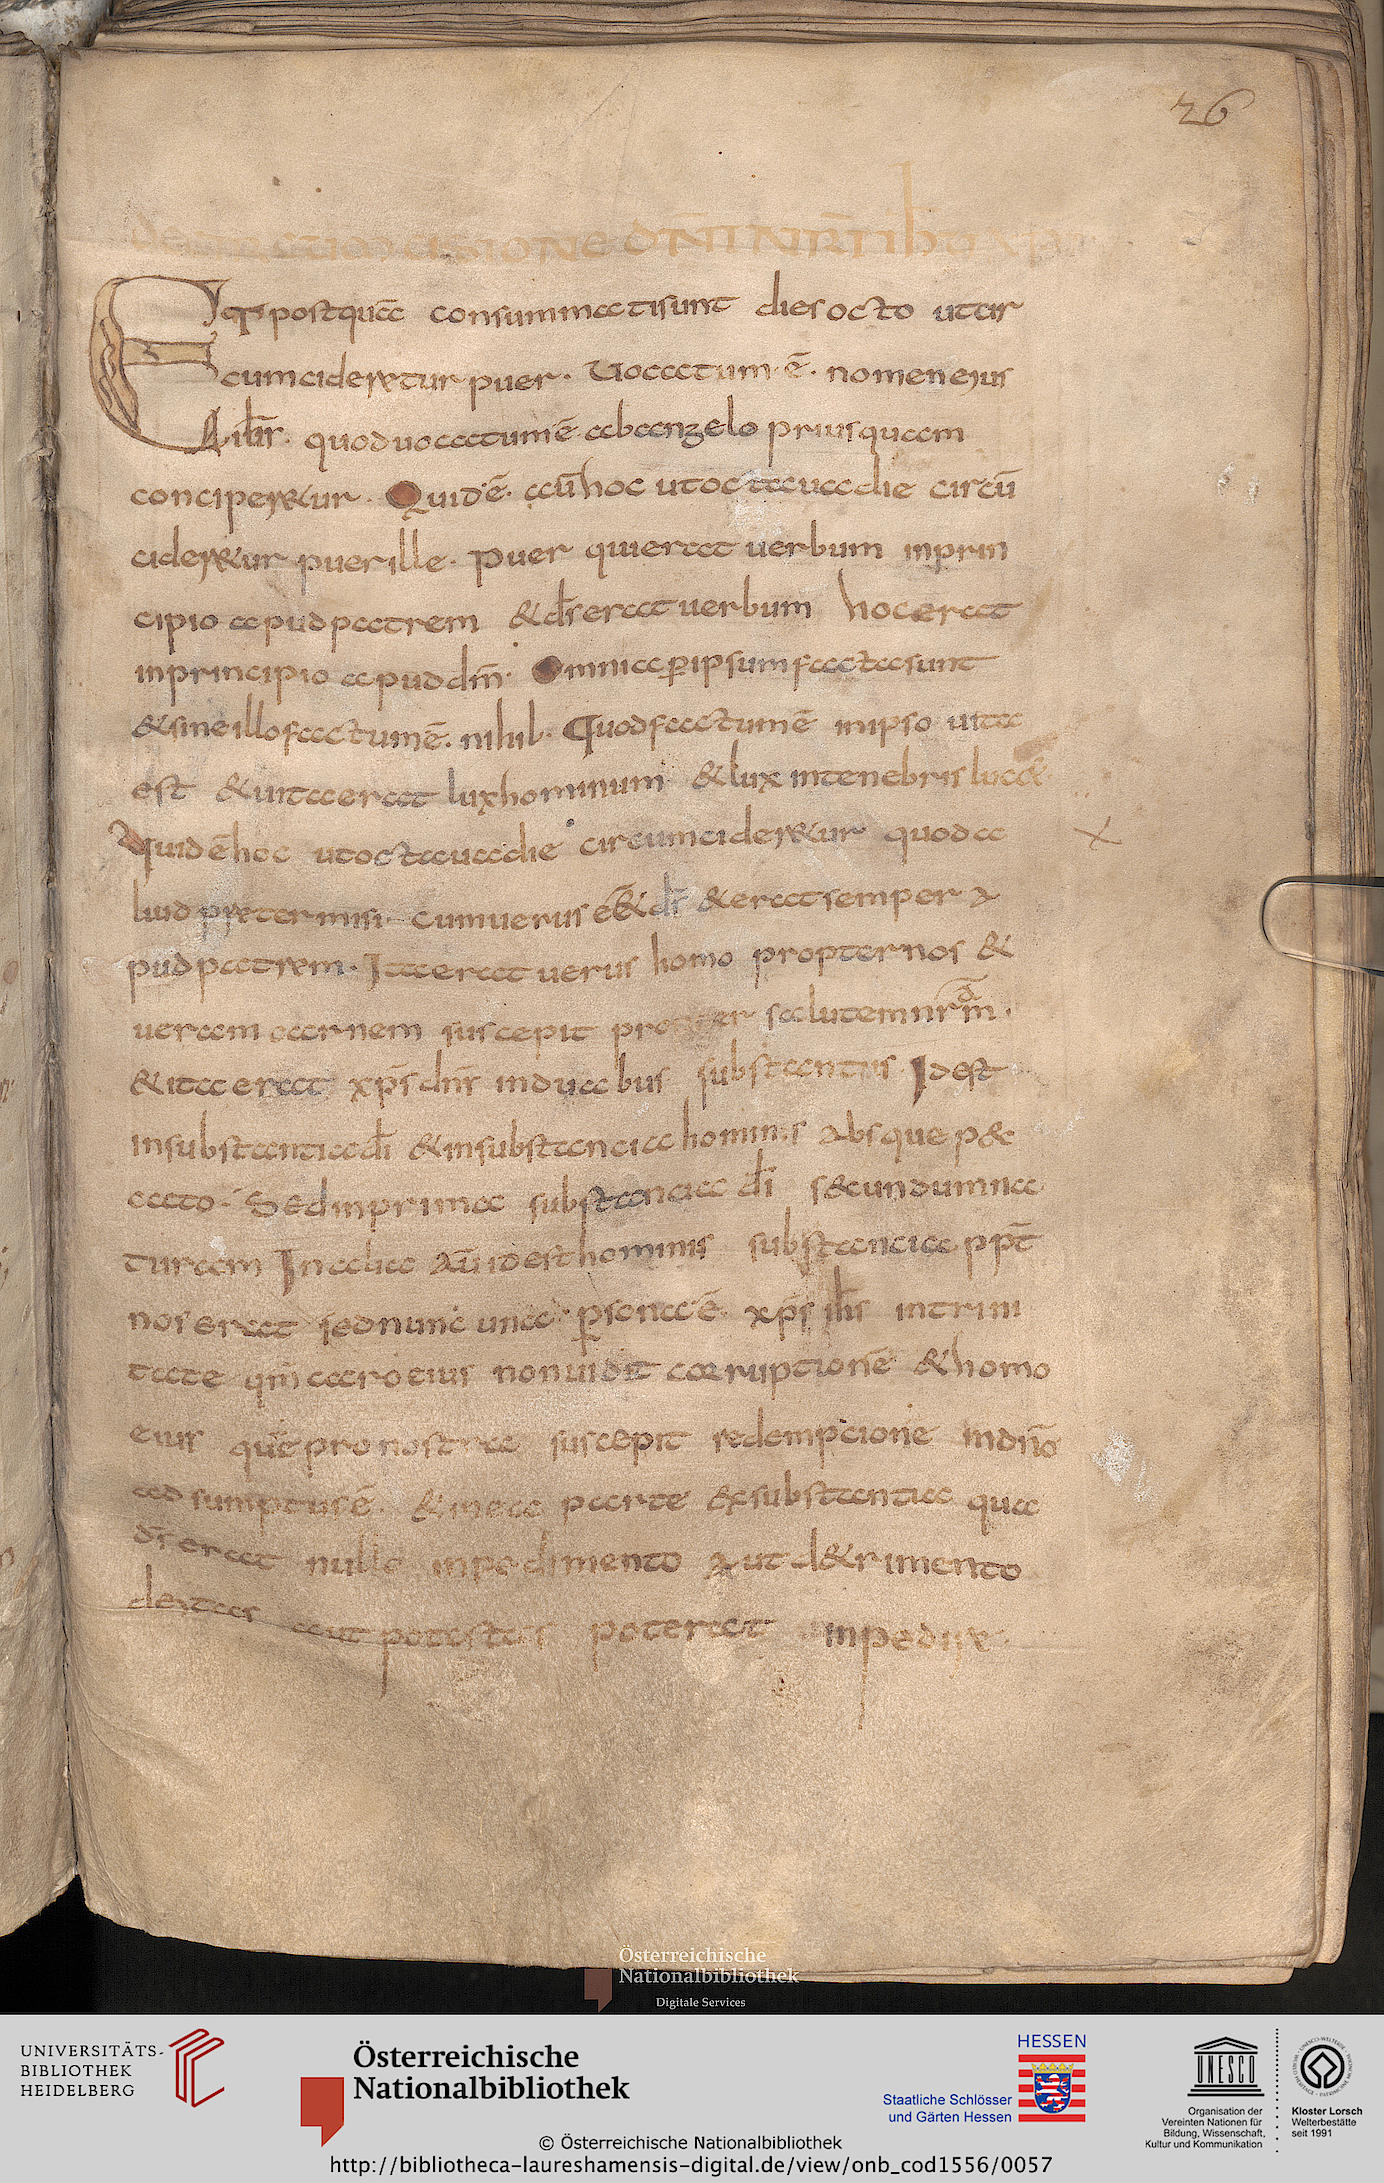 26
circumcisione dn̄i nr̄i ih̄u xp̄i
Et postquā consummati sunt dies octo ut cir
cumcideretur puer. Uocatum ē. nomen eius
ih̄s. quod uocatum ē ab angelo priusquam
conciperetur. Quid ē. aū hoc ut octaua die circū
cideretur puer ille. puer qui erat uerbum in prin
cipio apud patrem & ds̄ erat uerbum hoc erat
in principio apud dm̄. Omnia ꝑ ipsum facta sunt
& sine illo factum ē. nihil. Quod factum ē in ipso uita
est & uita erat lux hominum & lux in tenebris luc&
Quid ē hoc ut octaua die circumcider&ur quod a
luid pretermisi. cum uerus ē & ds̄ & erat semper a
pud patrem. Ita erat uerus homo propter nos &
ueram carnem suscepit propter salutem nr̄am.
& ita erat xp̄s dn̄s in duabus substantus Id est
in substantia dī & in substancia hominis absque p&c
cato. Sed in prima substancia dī s&cundum na
turam In alia aū id est hominis substancia ppt̄
nos erat sed nunc una ꝑsona ē xp̄s ih̄s in trini
tate qm̄ caro eius non uidit corruptionē & homo
eius quē pro nostra suscepit redempcione in dn̄o
adsumptus ē. & in ea parte & substantia qua
ds̄ erat nullo inpedimento aut d&rimento
aut potestas poterat inpedire
Österreichische
Nationalbibliothek
Digitale Services
UNIVERSITÄTS-
BIBLIOTHEK
HEIDELBERG
Österreichische
Nationalbibliothek
HESSEN
Staatliche Schlösser
und Gärten Hessen
UNESCO
Organisation der
Vereinten Nationen für
Bildung, Wissenschaft,
Kultur und Kommunikation
Kloster Lorsch
Welterbestätte
seit 1991
© Österreichische Nationalbibliothek
http://bibliotheca-laureshamensis-digital.de/view/onb_cod1556/0057